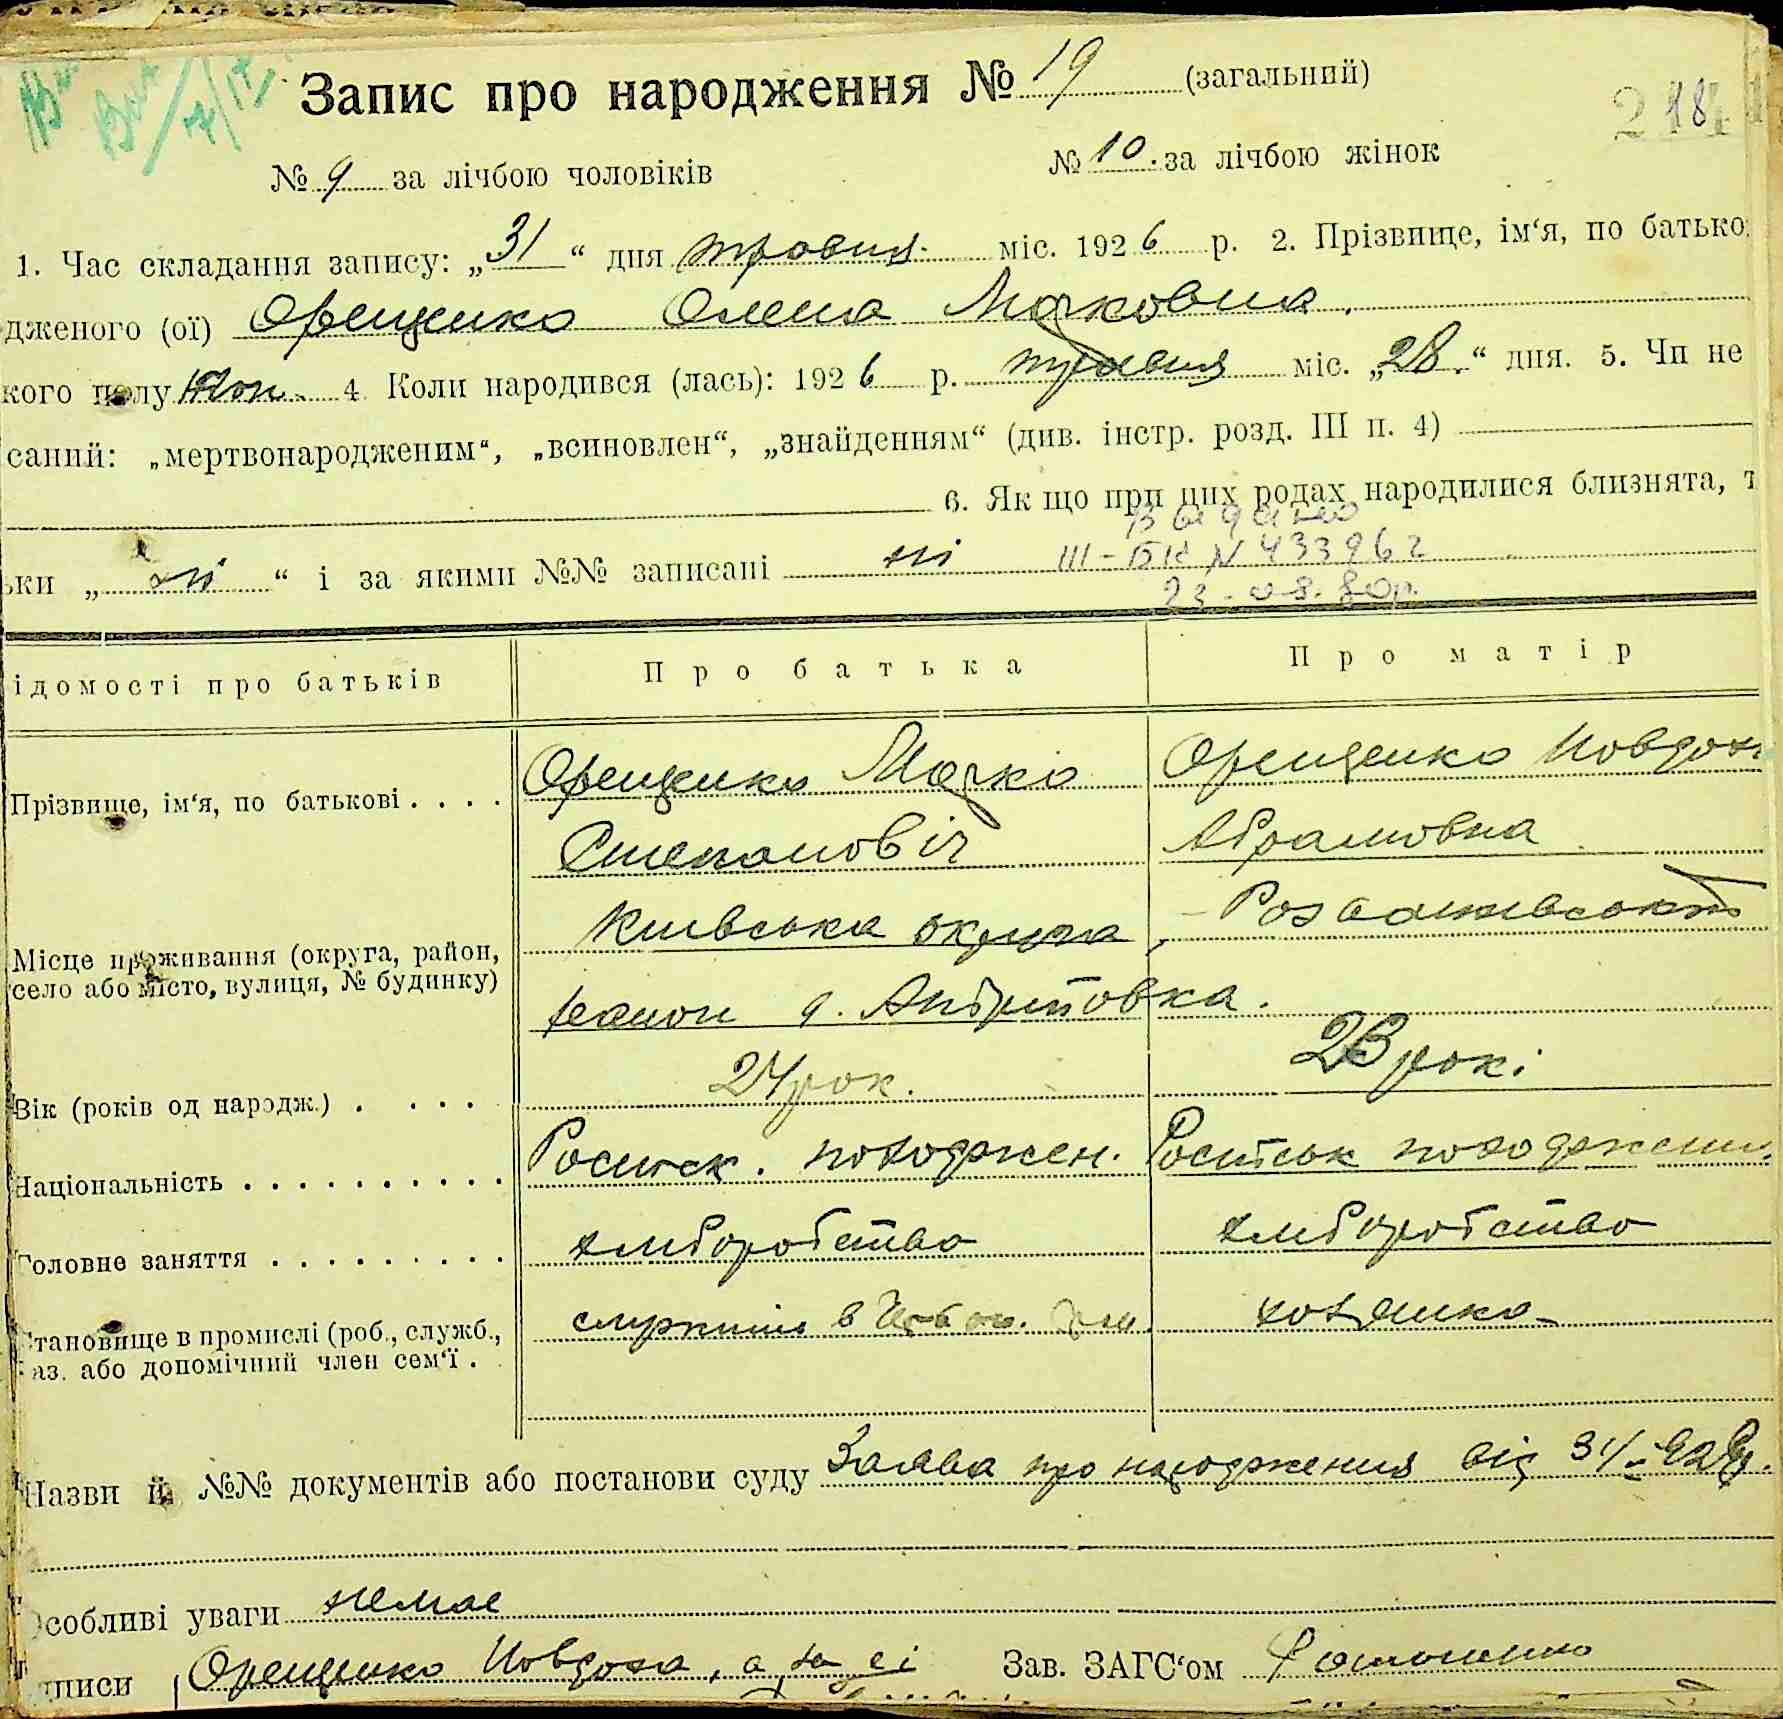 Запис про народження № 19 (загальний)
218
№ 9 за лічбою чоловіків № 10. за лічбою жінок
1. Час складання запису: „31“ дня травня міс. 1926 р. 2. Прізвище, ім‘я, по батько
дженого (ої) Орещенко Олена Марковна.
кого полу жон. 4 Коли народився (лась): 1926 р. травня міс. „28.“ дня. 5. Чи не
саний: „мертвонародженим“, „всиновлен“, „знайденням“ (див. інстр. розд. III п. 4)
6. Як що при цих родах народилися близнята, т
ьки „ні“ і за якими №№ записані ні
Видано
III-БК N 433962
23-08.80р.
ідомості про батьків Про батька Про матір
Прізвище, ім‘я, по батькові . . . . Орещенко Марко Орещенко Иовдох
Степановіч Абрамовна
Місце проживання (округа, район,
село або місто, вулиця, № будинку)
Киівська округа, Розважівськ
район д. Андріївка.
Вік (років од народж.) . . . . 24 рок. 23 рокі
Національність . . . . . . . . . . Росийск. походжен. Росийськ походження.
Головне заняття . . . . . . . . . хліборобство хліборобство
Становище в промислі (роб., служб.,
аз. або допомічний член сем‘ї .
хозяйка
Назви й №№ документів або постанови суду Заява про народження від 31/
Особливі уваги немає
писи Орещенко Иовдоха, а за еі Зав. ЗАГС‘ом